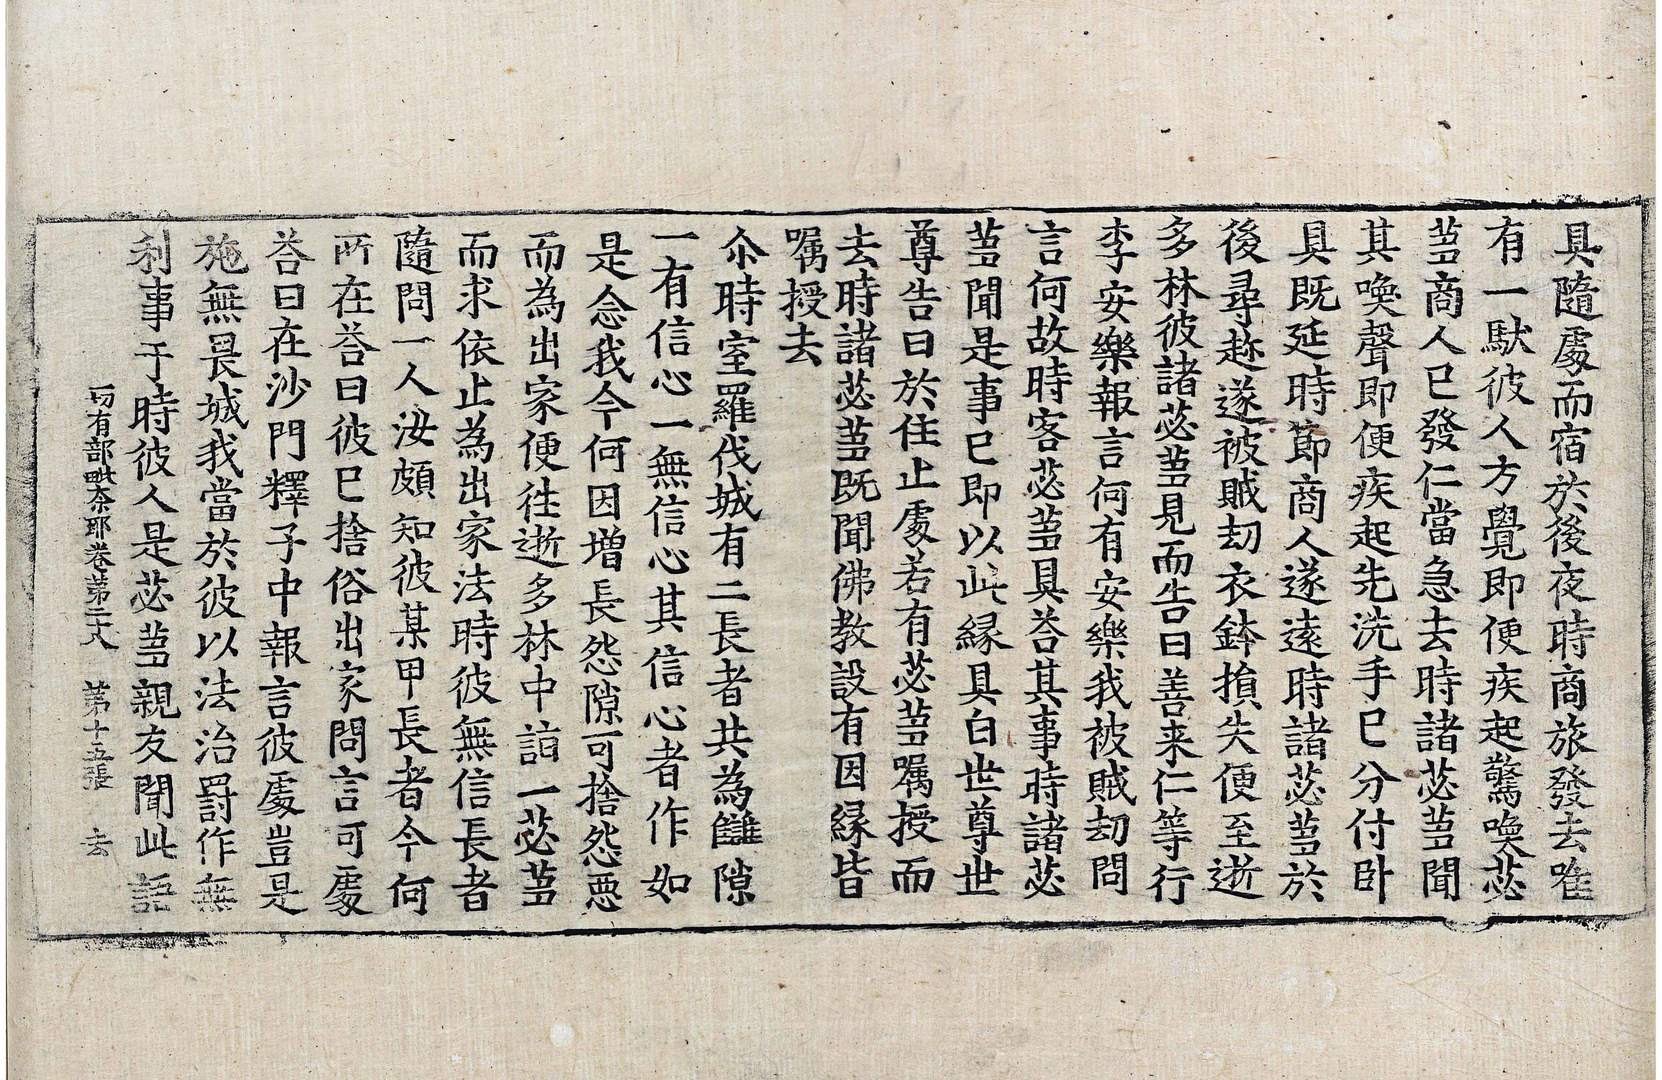 具隨處而宿於後夜時商旅發去唯
有一馱彼人方覺即便疾起驚喚苾
芻商人已發仁當急去時諸苾芻聞
其喚聲即便疾起先洗手已分付卧
具既延時節商人遂遠時諸苾芻於
後尋趂遂被賊刼衣鉢損失便至逝
多林彼諸苾芻見而告曰善来仁等行
李安樂報言何有安樂我被賊刼問
言何故時客苾芻具荅其事時諸苾
芻聞是事已即以此緣具白世尊世
尊告曰於住止處若有苾芻囑授而
去時諸苾芻既聞佛教設有因緣皆
囑授去
尒時室羅伐城有二長者共為讎隙
一有信心一無信心其信心者作如
是念我今何因增長怨隙可捨怨惡
而為出家便往逝多林中詣一苾芻
而求依止為出家法時彼無信長者
隨問一人汝頗知彼某甲長者今何
所在荅曰彼已捨俗出家問言可處
荅曰在沙門釋子中報言彼處豈是
施無畏城我當於彼以法治罸作無
利事于時彼人是苾芻親友聞此語
一切有部毗柰耶卷第二十八 第十五張 去